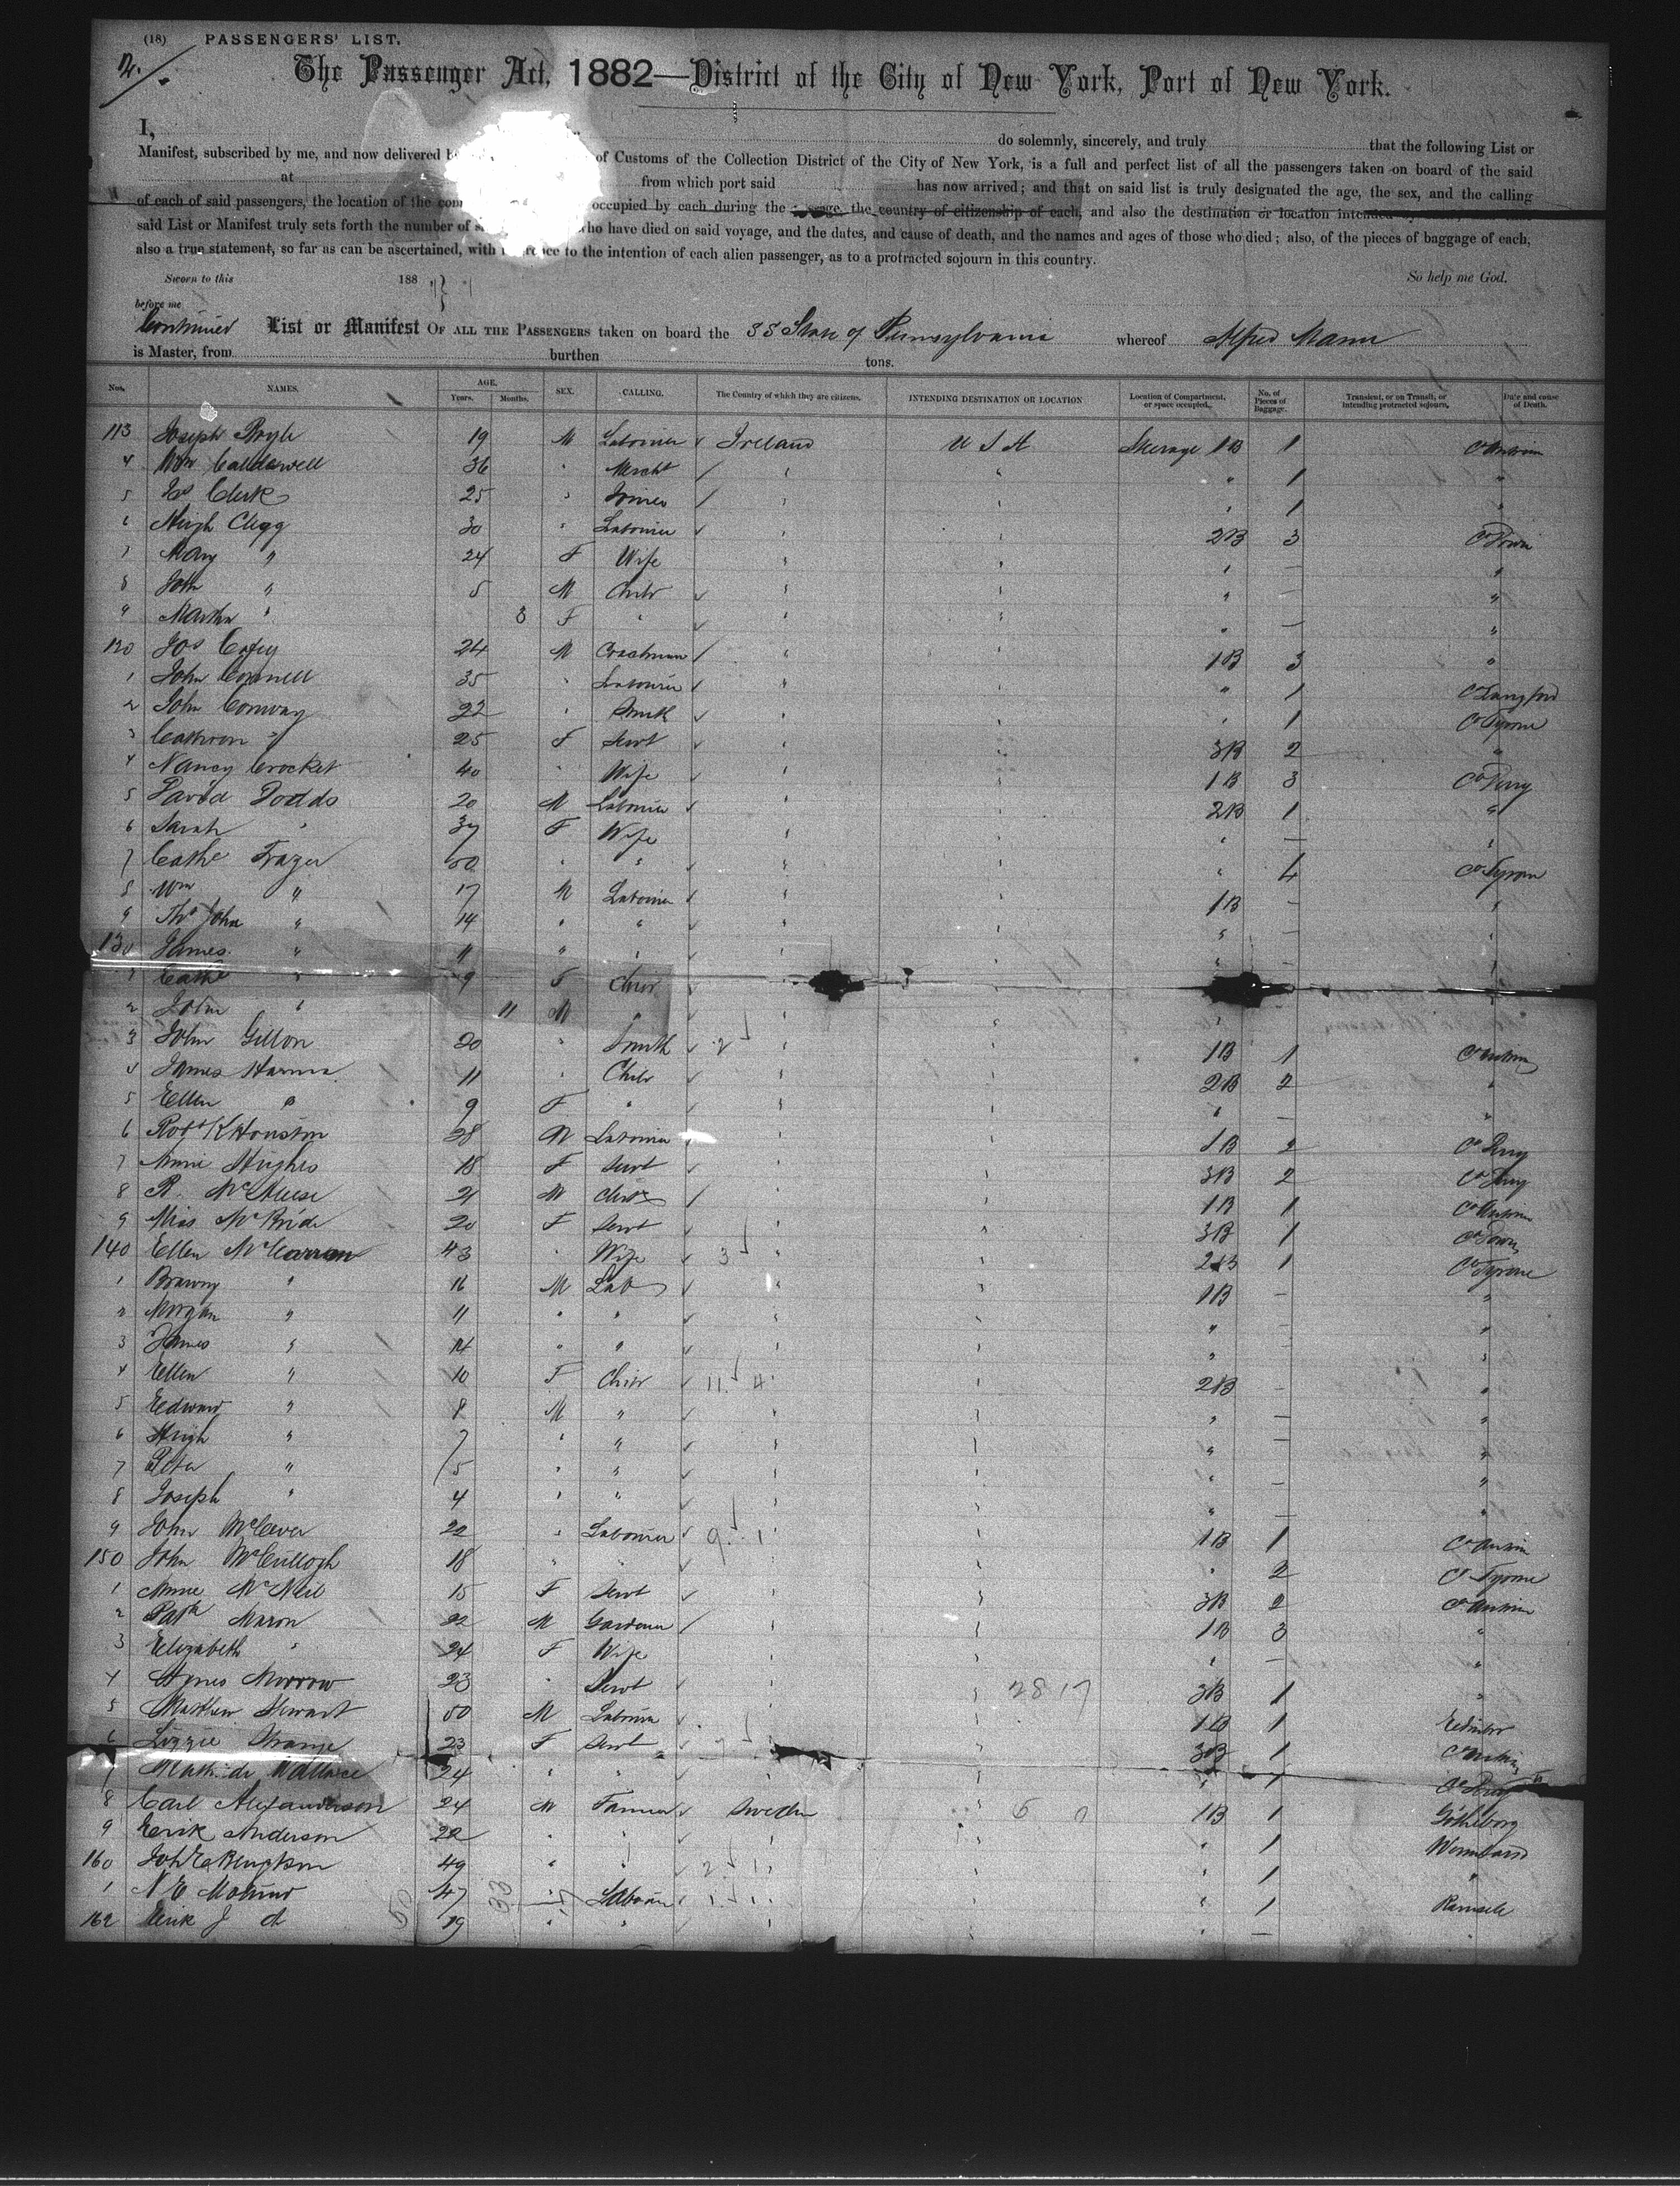 (18) PASSENGERS' LIST.
The Passenger Act, 1882—District of the City of New York, Port of New York.
I, do solemnly, sincerely, and truly that the following List or
Manifest, subscribed by me, and now delivered of Customs of the Collection District of the City of New York, is a full and perfect list of all the passengers taken on board of the said
at from which port said has now arrived; and that on said list is truly designated the age, the sex, and the calling
of each of said passengers, the location of the occupied by each during the the country of citizenship of each, and also the destination or location
said List or Manifest truly sets forth the number of who have died on said voyage, and the dates, and cause of death, and the names and ages of those who died; also, of the pieces of baggage of each,
also a true statement, so far as can be ascertained, with to the intention of each alien passenger, as to a protracted sojourn in this country.
Sworn to this 188 So help me God.
before me
Continued List or Manifest OF ALL THE PASSENGERS taken on board the SS State of Pennsylvania whereof Alfred Mann
is Master, from burthen tons.
Nos. NAMES. AGE. Years. Months. SEX. CALLING. The Country of which they are citizens. INTENDING DESTINATION OR LOCATION Location of Compartment, or space occupied. No. of Pieces of Baggage. Transient, or on Transit, or intending protracted sojourn. Date and cause of Death.
113 Joseph 19 M Labourer Ireland U S A Steerage 1B 1 Co Antrim
4 Wm Caldwell 36 " Mercht " " " 1 "
5 Jas Clerk 25 " Joiner " " " 1 "
6 Hugh Clegg 30 " Labourer " " 2B 3 Co Down
7 Mary " 24 F Wife " " " — "
8 John " 5 M Child " " " — "
9 Martha " 3 F " " " " — "
120 Jos 24 M Coachman " " 1B 3 "
1 John Connell 35 " Labourer " " " 1 Co Longford
2 John Conway 22 " Smith " " " 1 Co Tyrone
3 Cathron " 25 F Servt " " 3B 2 "
4 Nancy Crocket 40 " Wife " " 1B 3 Co Derry
5 David Dodds 20 M Labourer " " 2B 1 "
6 Sarah " 37 F Wife " " " — "
7 Cathe Frazer 50 " " " " " 4 Co Tyrone
8 Wm " 17 M Labourer " " 1B — "
9 Thos John " 14 " " " " " — "
130 James " 11 " " " " " — "
1 Cathe " 9 F Child
2 John " 11 M " " "
3 John Gillon 20 " Smith " " 1B 1 Co Antrim
4 James Hanna 11 " Child " " 2B 2 "
5 Ellen " 9 F " " " " — "
6 Robt K Houston 28 M Labourer " " 1B 2 Co Derry
7 Annie Hughes 18 F Servt " " 3B 2 Co Derry
8 R. McAleese 21 M " " 1B 1 Co Antrim
9 Miss McBride 20 F Servt " " 3B 1 Co Down
140 Ellen 43 " Wife " " 2B 1 Co Tyrone
1 " 16 M Lab " " 1B — "
2 Morgan " 11 " " " " " — "
3 James " 14 " " " " " "
4 Ellen " 10 F Child " " 2B — "
5 Edward " 8 M " " " " — "
6 Hugh " 7 " " " " " — "
7 Peter " 5 " " " " " — "
8 Joseph " 4 " " " " " — "
9 John 22 " Labourer " " 1B 1 Co Antrim
150 John McCullogh 18 " " " " " 2 Co Tyrone
1 Annie McNeil 15 F Servt " " 3B 2 Co Antrim
2 Patk Maron 22 M Gardener " " 1B 3 "
3 Elizabeth " 24 F Wife " " " — "
4 Agnes Morrow 23 " Servt " " 3B 1 "
5 Matthew Stewart 50 M Labourer " " 1B 1
6 Lizzie 23 F Servt " " 3B 1 Co Antrim
7 Wallace 24 " " " " " 1 Co Derry
8 Carl Alexanderson 24 M Farmer Sweden " 1B 1 Götheborg
9 Erik Anderson 22 " " " " " 1 Wermland
160 Joh E Bengtson 49 " " " " " 1 "
1 N E 47 " Labourer " " " 1 Ramsele
162 Erik J 19 " " " " " — "